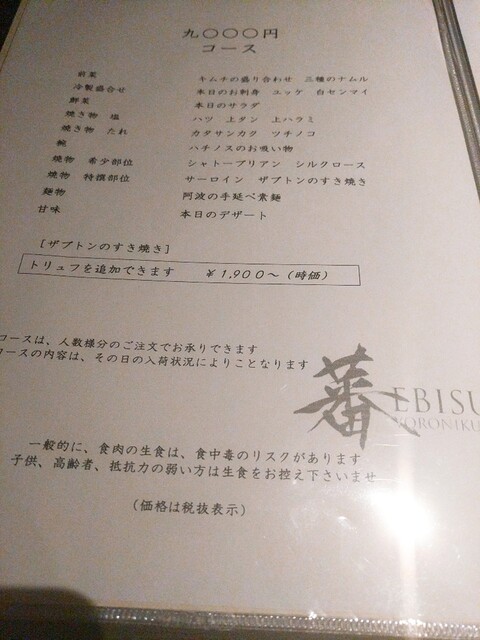 九〇〇〇円
コース
前菜 キムチの盛り合わせ 三種のナムル
冷製盛合せ 本日のお刺身 ユッケ 白センマイ
鮮菜 本日のサラダ
焼き物 塩 ハツ 上タン 上ハラミ
焼き物 たれ カタサンカク ツチノコ
椀 ハチノスのお吸い物
焼物 希少部位 シャトーブリアン シルクロース
焼物 特撰部位 サーロイン ザブトンのすき焼き
麺物 阿波の手延べ素麺
甘味 本日のデザート
[ザブトンのすき焼き]
トリュフを追加できます ￥1,900～（時価）
コースは、人数様分のご注文でお承りできます
コースの内容は、その日の入荷状況によりことなります
蕃 EBISU
YORONIKU
一般的に、食肉の生食は、食中毒のリスクがあります
子供、高齢者、抵抗力の弱い方は生食をお控え下さいませ
（価格は税抜表示）